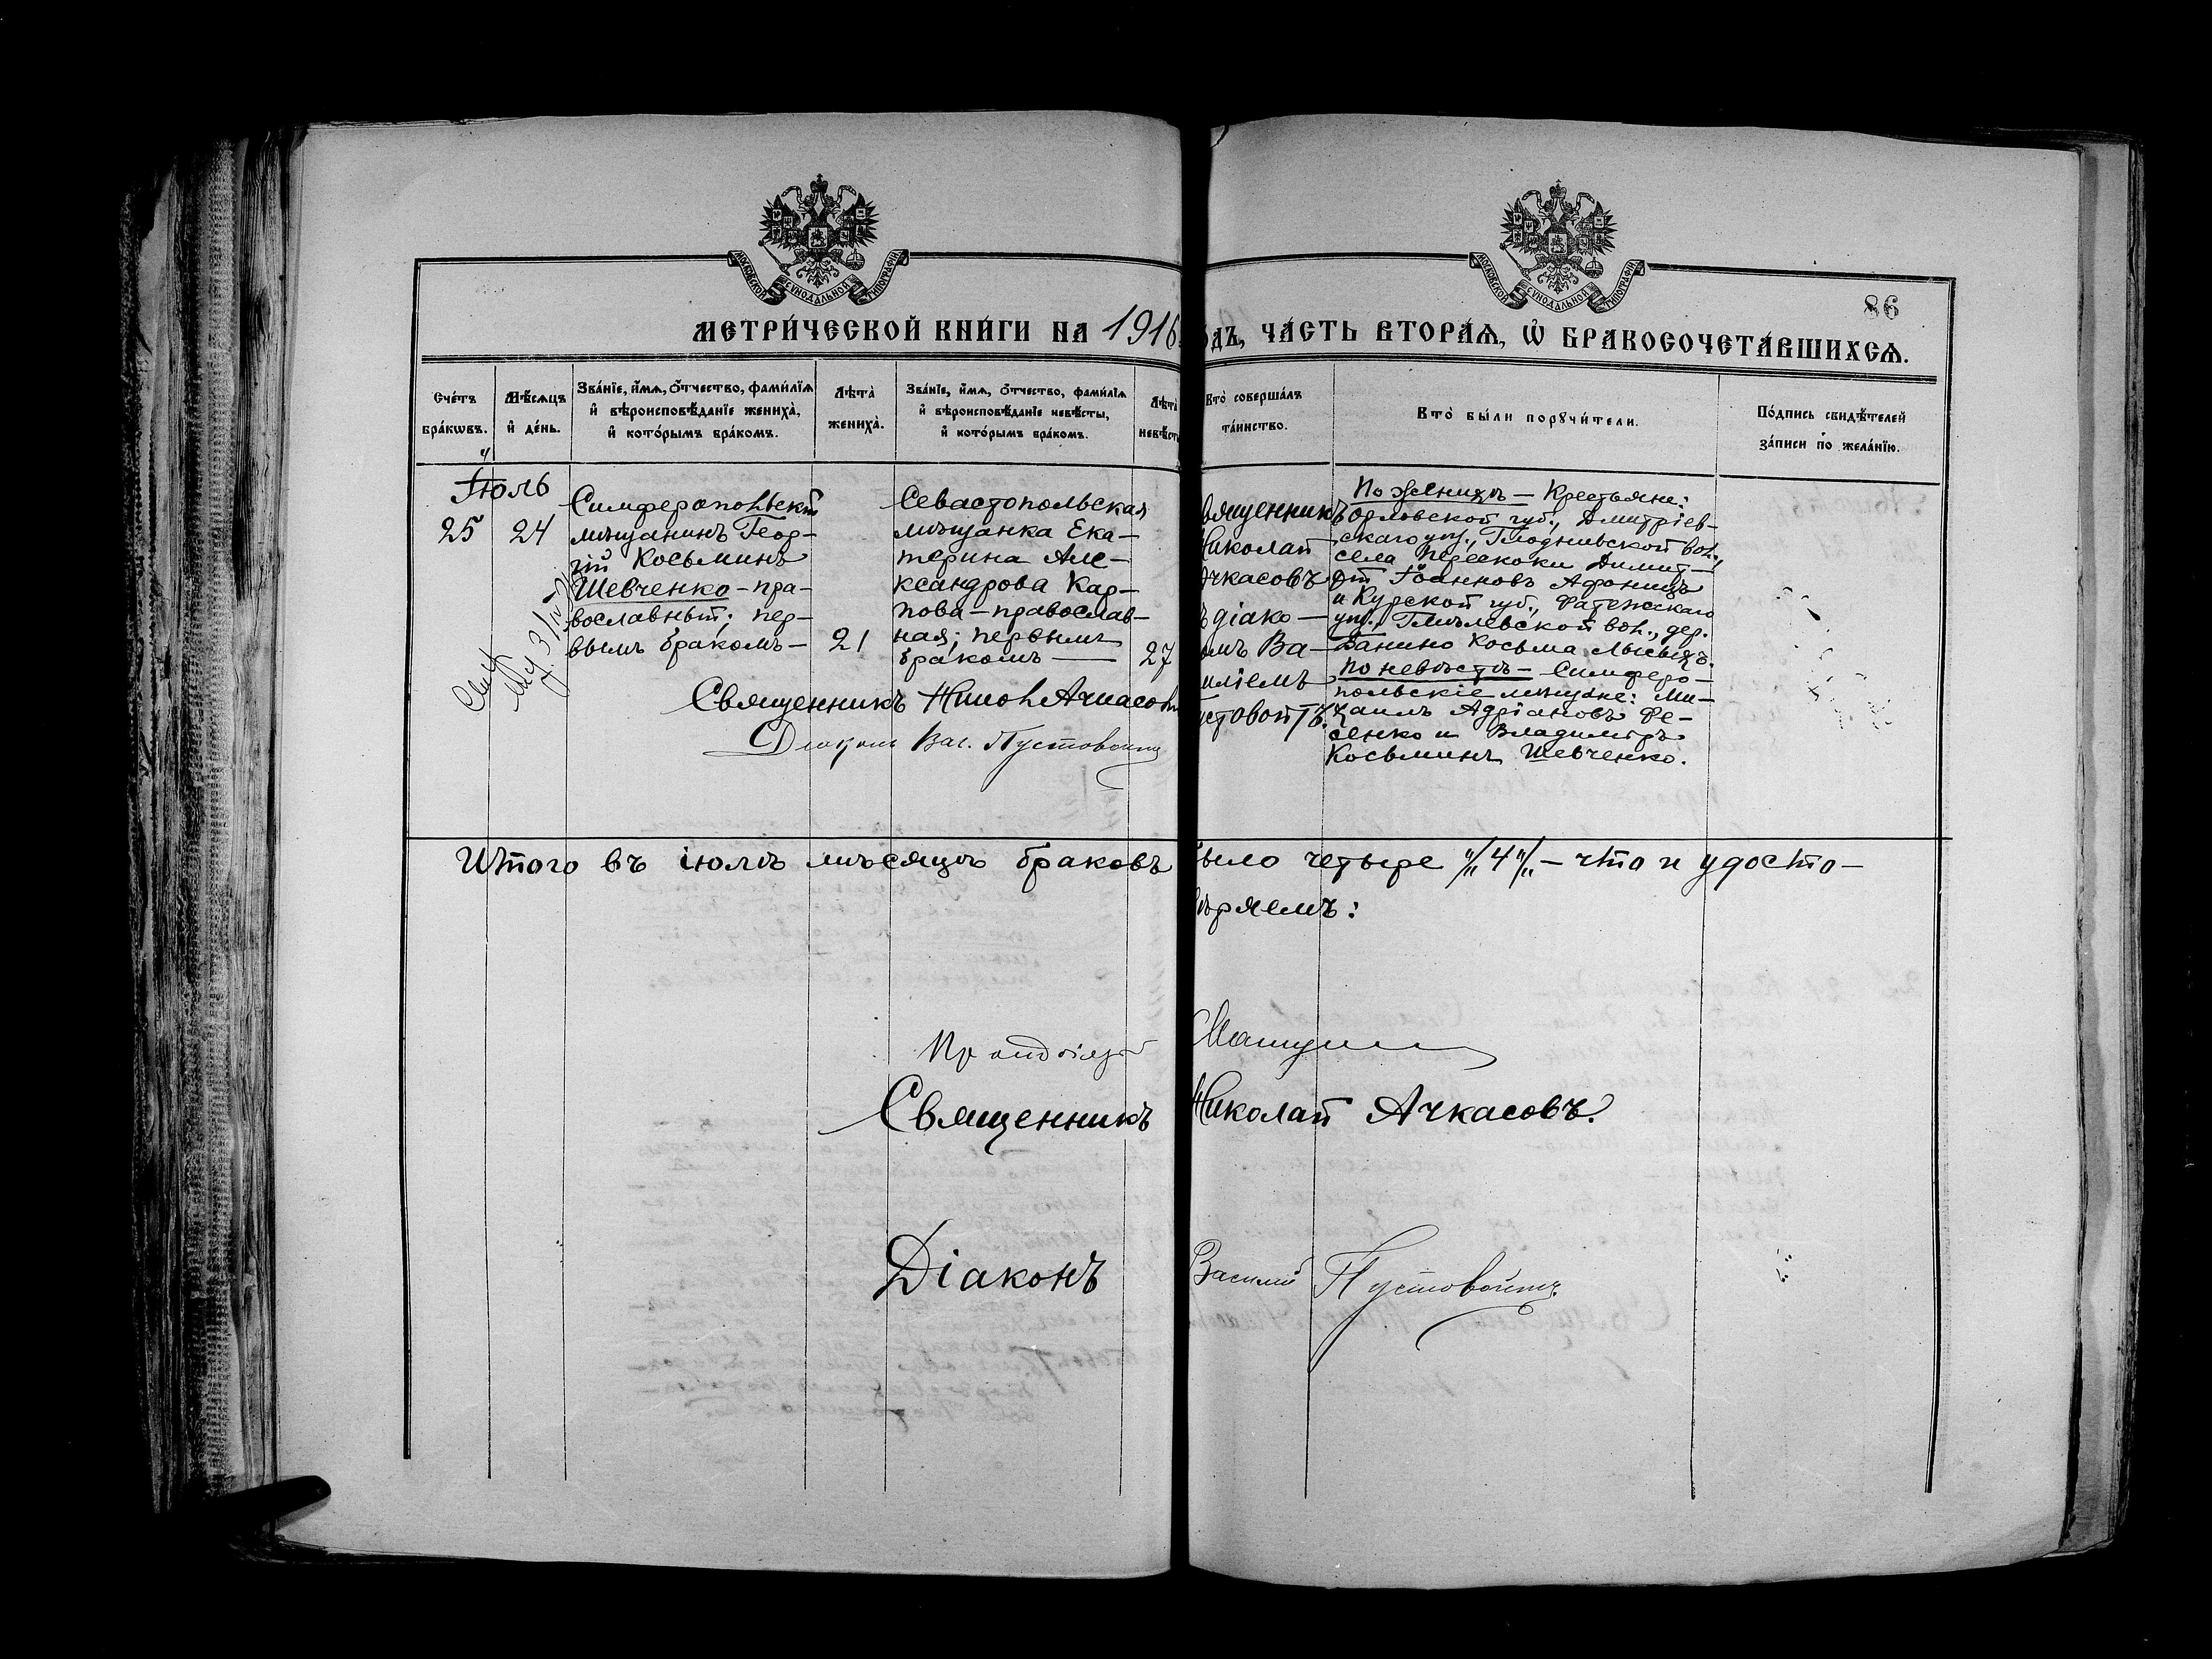 МОСКОВСКОЙ СѴНОДАЛЬНОЙ ТИПОГРАФІИ
МОСКОВСКОЙ СѴНОДАЛЬНОЙ ТИПОГРАФІИ
86
МЕТРИ́ЧЕСКОЙ КНИ́ГИ НА 1916
ДЪ, ЧА́СТЬ ВТОРА́Ѧ, Ѽ БРАКОСОЧЕТА́ВШИХСѦ.
Сче́тъ бра́кѡвъ.
Мѣ́сѧцъ и҆ де́нь.
Зва́нїе, и҆́мѧ, ѻ҆́тчество, фами́лїѧ
и҆ вѣроисповѣ́данїе жениха̀,
и҆ кото́рымъ бра́комъ.
Лѣ́та жениха̀.
Зва́нїе, и҆́мѧ, ѻ҆́тчество, фами́лїѧ
и҆ вѣроисповѣ́данїе невѣ́сты,
и҆ кото́рымъ бра́комъ.
Лѣ́та невѣ́ст
Кто̀ соверша́лъ
та́инство.
Кто̀ бы́ли порꙋчи́тели.
По́дпись свидѣ́телей
за́писи по жела́нїю.
Іюль
25
24
Симферопольскій
мѣщанинъ Геор-
гій Косьминъ
Шевченко - пра-
вославный; пер-
вымъ бракомъ -
21
Севастопольская
мѣщанка Ека-
терина Але-
ксандрова Кар-
пова - православ-
ная; первымъ
бракомъ -
27
вященникъ
Николай
Ачкасовъ
ъ діако-
омъ Ва-
иліемъ
устовойтъ.
По женихѣ - Крестьяне:
Орловской губ., Дмитріев-
скаго уѣз., Глодневской вол.,
села Пересококи Димит-
рій Іоанновъ Афонинъ
и Курской губ., Фатежскаго
уѣз., Гнилевской вол., дер.
Банино Косьма Лысыхъ.
По невѣстѣ - Симферо-
польскіе мѣщане: Ми-
хаилъ Адріановъ Фе-
сенко и Владиміръ
Косьминъ Шевченко.
Священникъ Никол Ачкасовъ
Діаконъ Вас. Пустовойтъ
Итого въ іюлѣ мѣсяцѣ браковъ было четыре /„4„/ - что и удосто-
вѣряемъ:
Протоіерей
Священникъ Николай Ачкасовъ.
Діаконъ Василій Пустовойтъ.